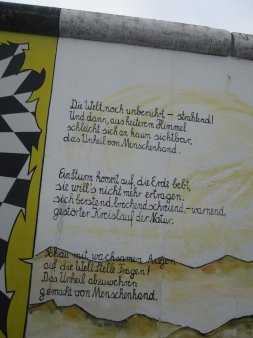 Die Welt, noch unberührt – strahlend!
Und dann, aus heiterem Himmel
schleicht sich an kaum sichtbar,
das Unheil von Menschenhand.
Ein Sturm kommt auf, die Erde bebt,
sie will's nicht mehr ertragen,
sich berstend, brechend, schreiend, – warnend,
gestörter Kreislauf der Natur.
Schau mit wachsamen Augen
auf die Welt, stelle Fragen!
Das Unheil abzuwehren
gemacht von Menschenhand.